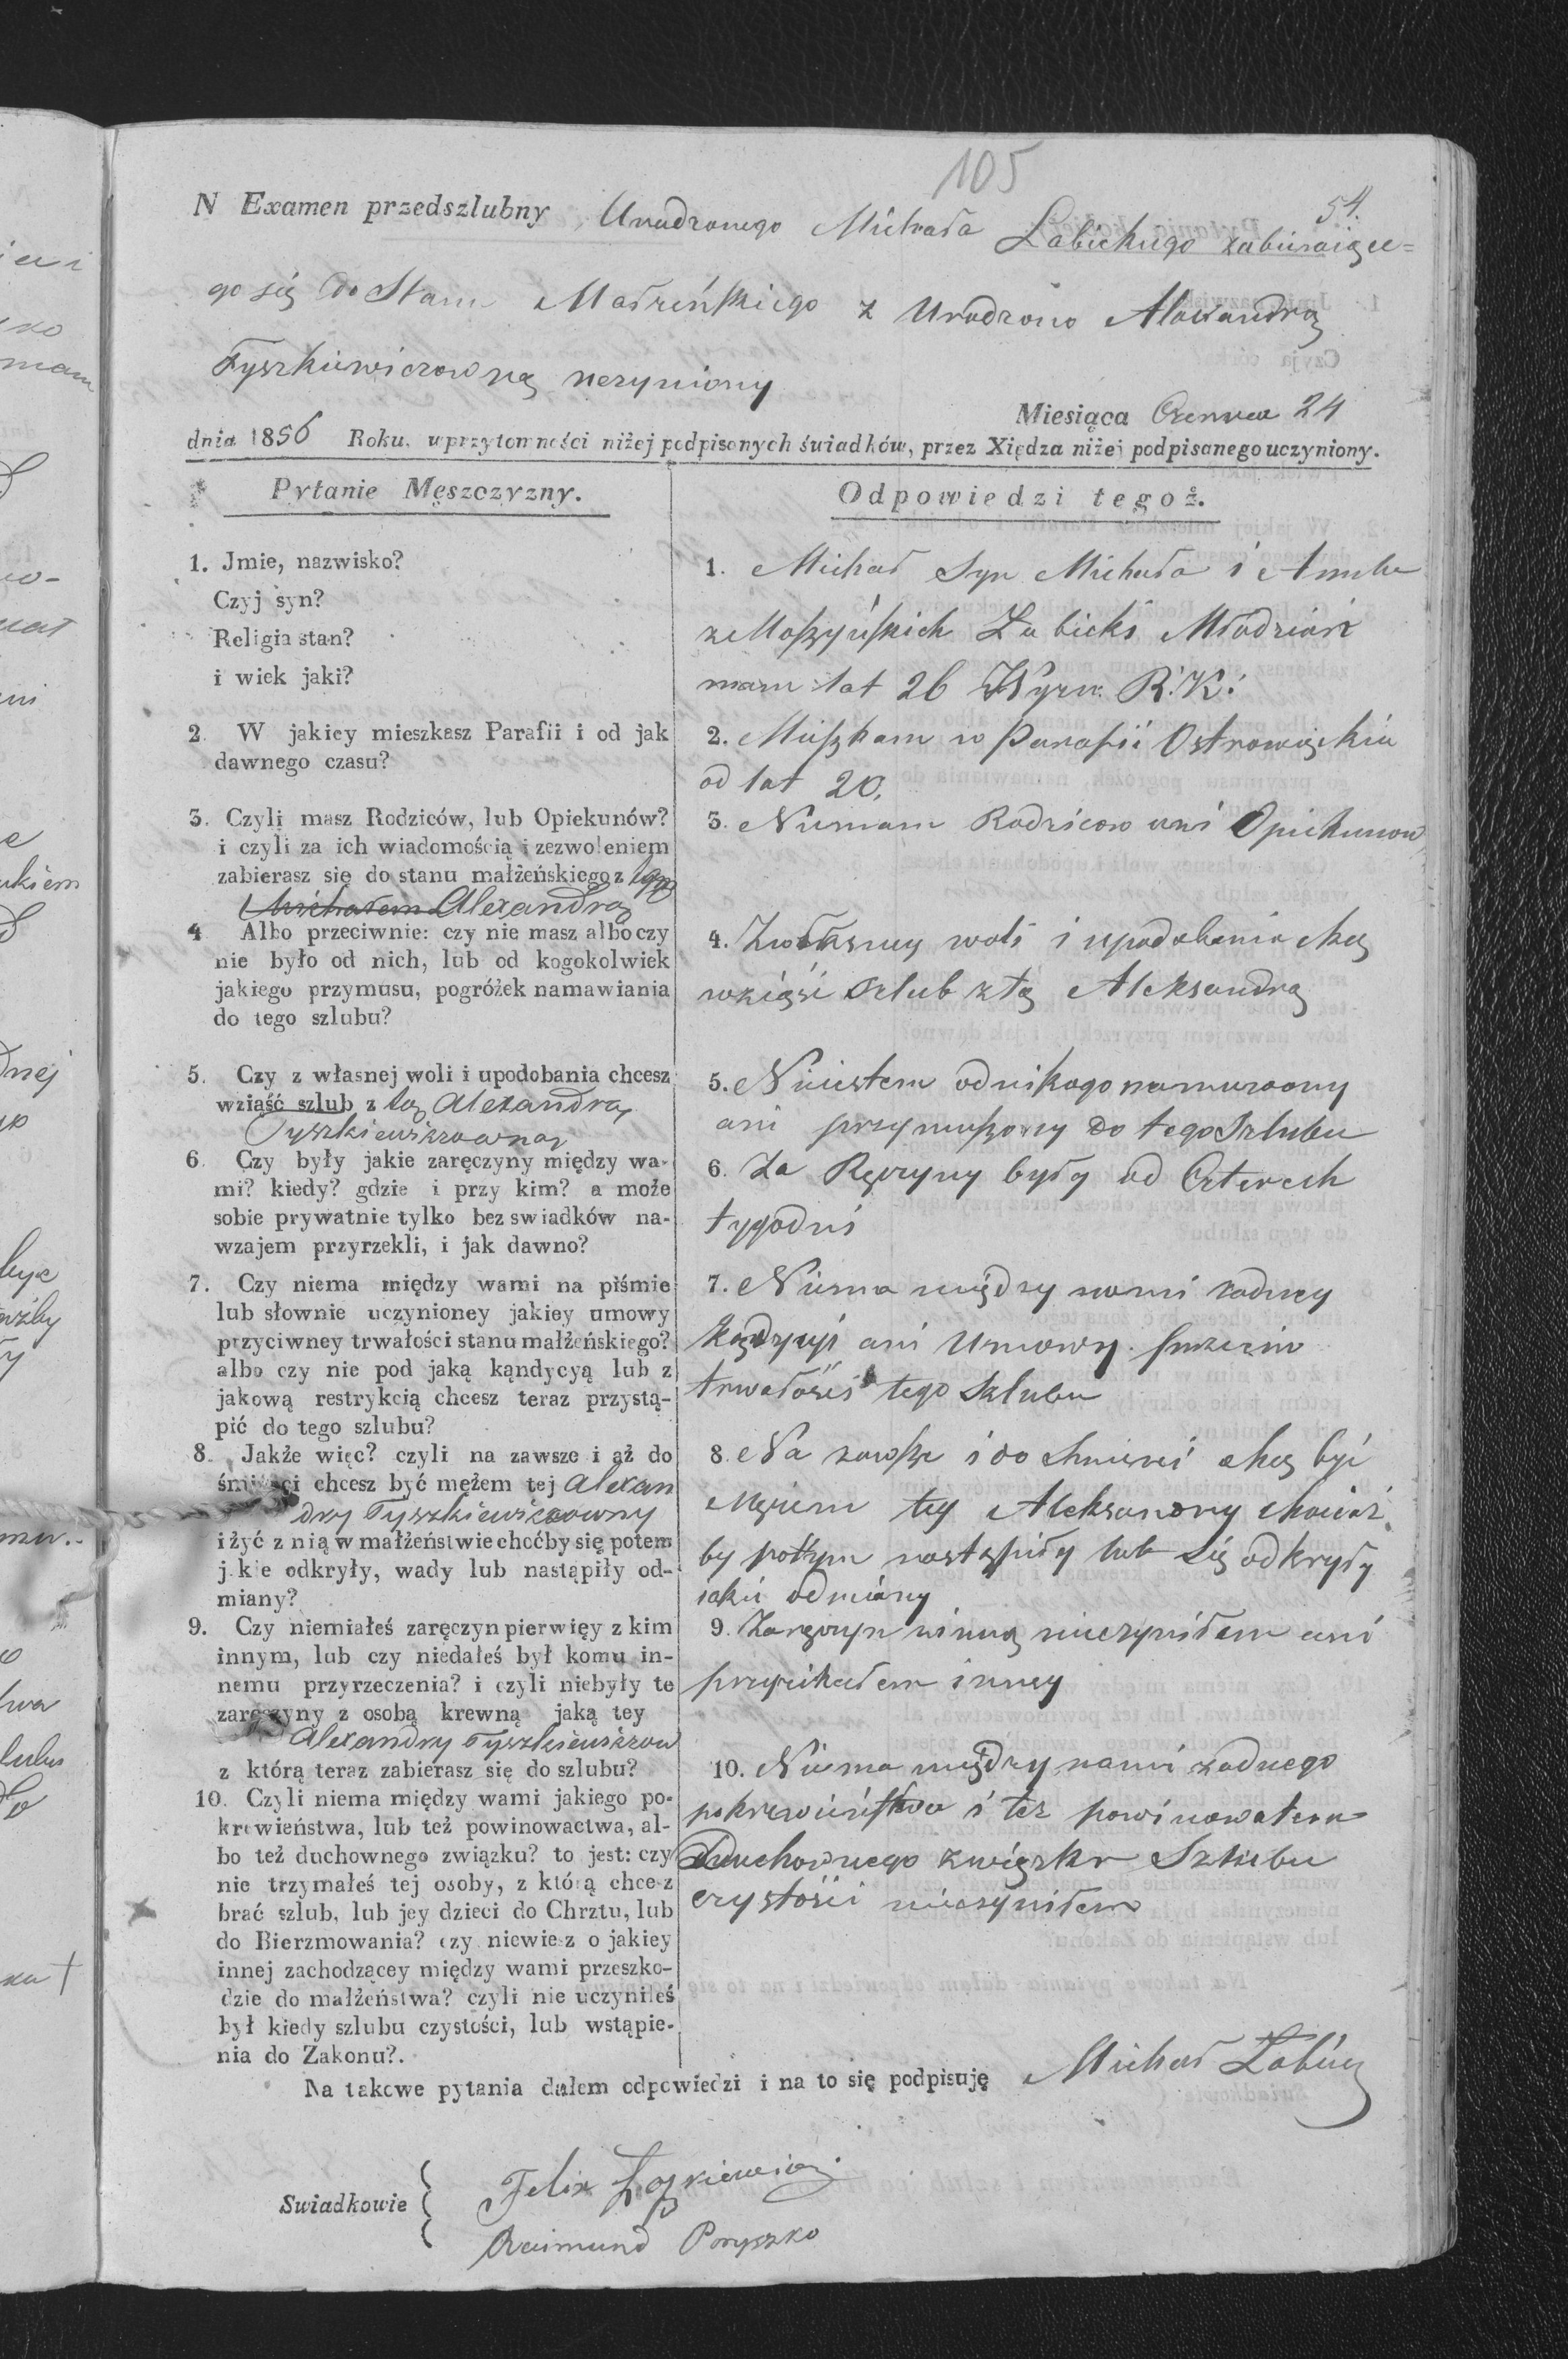 105
54.
N Examen przedszlubny Urodzonego Michała Łabickiego zabieraiące=
go się do Stanu Małżeńskiego z Urodzono Alexandrą
Tyszkiewiczowną uczyniony
Miesiąca Czerwca 24
dnia 1856 Roku. w przytomności niżej podpisanych świadków, przez Xiędza niżej podpisanego uczyniony.
Pytanie Męszczyzny.
1. Jmie, nazwisko?
Czyj syn?
Religia stan?
i wiek jaki?
2. W jakiey mieszkasz Parafii i od jak
dawnego czasu?
3. Czyli masz Rodziców, lub Opiekunów?
i czyli za ich wiadomością i zezwoleniem
zabierasz się do stanu małżeńskiego z tą
Michałem Alexandrą
4 Albo przeciwnie: czy nie masz albo czy
nie było od nich, lub od kogokolwiek
jakiego przymusu, pogróżek namawiania
do tego szlubu?
5. Czy z własnej woli i upodobania chcesz
wziąść szlub z tą Alexandrą
Tyszkiewiczowną
6. Czy były jakie zaręczyny między wa-
mi? kiedy? gdzie i przy kim? a może
sobie prywatnie tylko bez swiadków na-
wzajem przyrzekli, i jak dawno?
7. Czy niema między wami na piśmie
lub słownie uczynioney jakiey umowy
przyciwney trwałości stanu małżeńskiego?
albo czy nie pod jaką kąndycyą lub z
jakową restrykcią chcesz teraz przystą-
pić do tego szlubu?
8. Jakże więc? czyli na zawsze i aż do
śmierci chcesz być mężem tej Alexan
dry Tyszkiewiczowny
i żyć z nią w małżeństwie choćby się potem
jakie odkryły, wady lub nastąpiły od-
miany?
9. Czy niemiałeś zaręczyn pierwięy z kim
innym, lub czy niedałeś był komu in-
nemu przyrzeczenia? i czyli niebyły te
zaręczyny z osobą krewną jaką tey
Alexandry Tyszkiewiczow
z którą teraz zabierasz się do szlubu?
10. Czyli niema między wami jakiego po-
krewieństwa, lub też powinowactwa, al-
bo też duchownego związku? to jest: czy
nie trzymałeś tej osoby, z którą chcesz
brać szlub, lub jey dzieci do Chrztu, lub
do Bierzmowania? czy niewiesz o jakiey
innej zachodzącey między wami przeszko-
dzie do małżeństwa? czyli nie uczyniłeś
był kiedy szlubu czystości, lub wstąpie-
nia do Zakonu?.
Odpowiedzi tegoż.
1. Michał Syn Michała i Anny
z Moszyńskich Łabicki Młodzian
mam lat 26 Wyzn. R. K:
2. Mieszkam w Parafii Ostrowieckie
od lat 20.
3. Niemam Rodzicow ani Opiekunow
4. Zwłasney woli i upodobania chcę
wziąść szlub ztą Aleksandrą
5. Niiestem odnikogo namurzony
ani przymuszony do tego Szlubu
6. Za Ręczyny były od Czterech
tygodni
7. Niema między nami zadney
Kądycyi ani Umowy przeciw
trwałości tego Szlubu
8. Na zawsze i do śmierci chcę być
Mężem tey Aleksandry chociaż
by potym nastąpiły lub się odkryły
iakie odmiany
9. Zaręczyn z inną nieczyniłem ani
przyrzekałem inney
10. Niema między nami zadnego
pokrewieństwa i też powinowatcwa
Duchownego związku Szlubu
czystości nieczyniłem
Na takowe pytania dałem odpowiedzi i na to się podpisuję Michał Łabicy
Swiadkowie
Raimund Poryszko